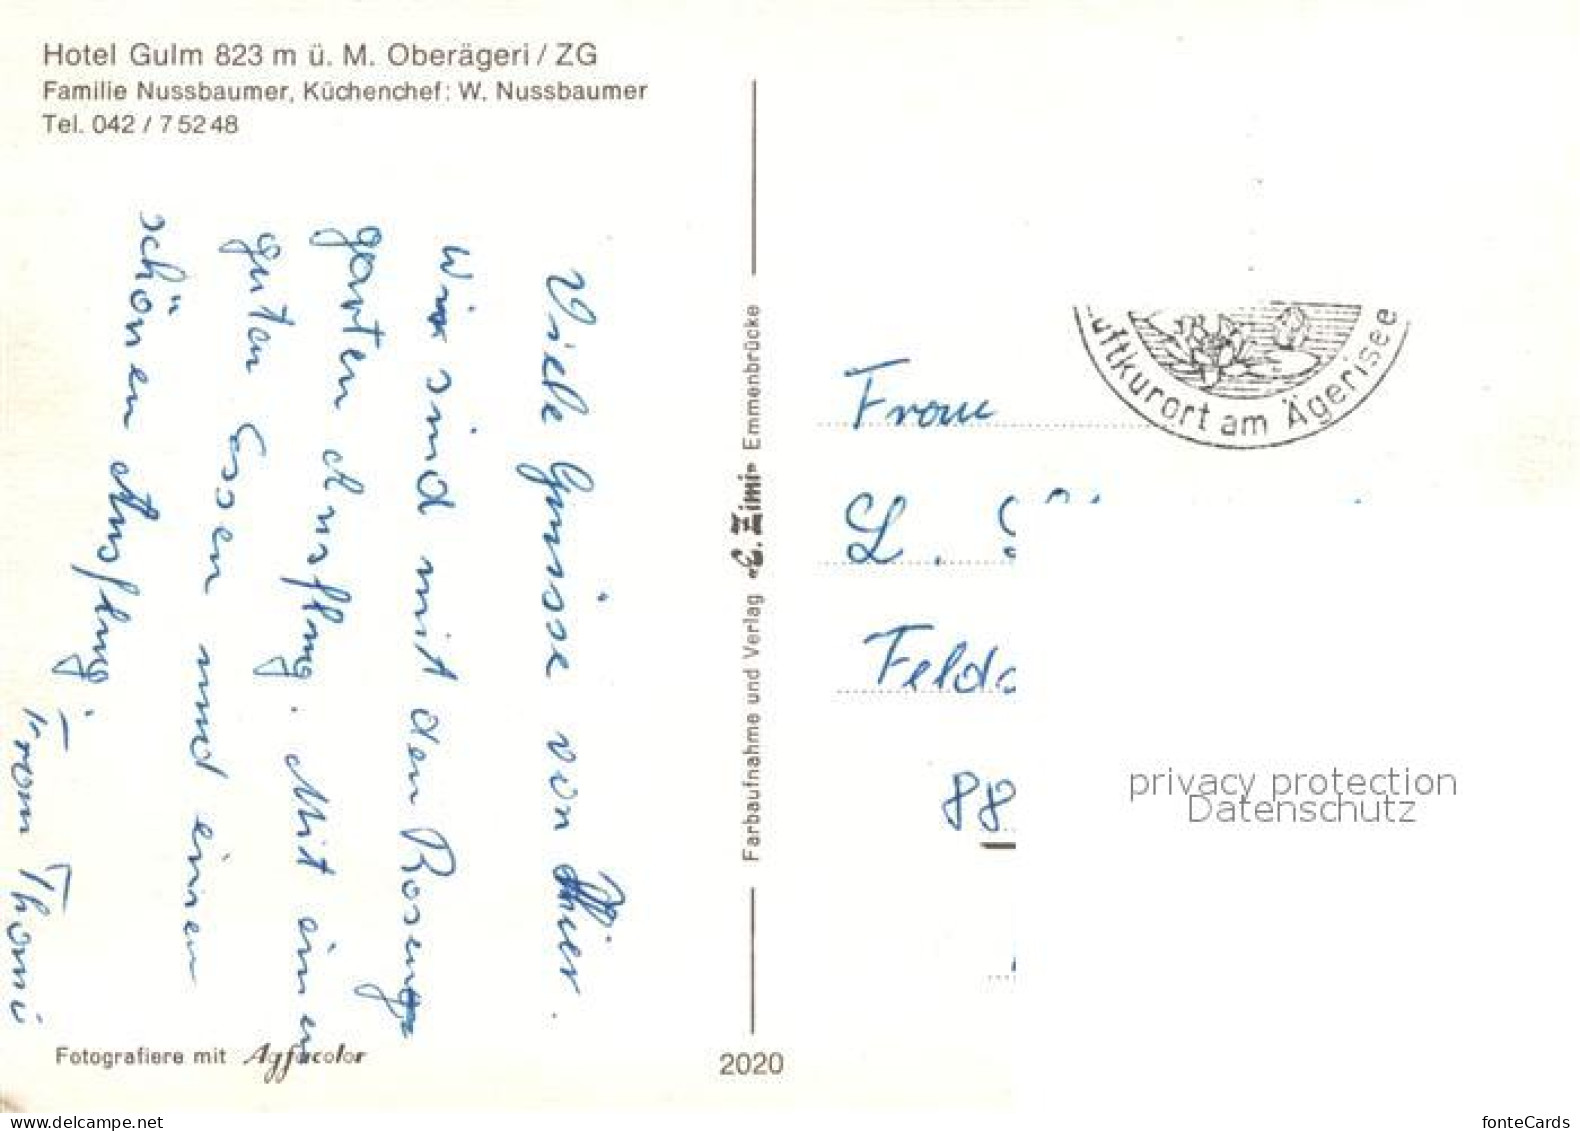 Hotel Gulm 823 m ü. M. Oberägeri / ZG
Familie Nussbaumer, Küchenchef: W. Nussbaumer
Tel. 042 / 7 52 48
Viele Grüsse von hier.
Wir sind mit den Rosen
garten Ausflug. Mit einen
guten Essen und einen
schönen Ausflug.
Frau Thomi
Fotografiere mit Agfacolor
Farbaufnahme und Verlag «E. Zimi» Emmenbrücke
2020
uftkurort am Ägerisee
Frau
L.
Felds
88
privacy protection
Datenschutz
www.delcampe.net
fonteCards